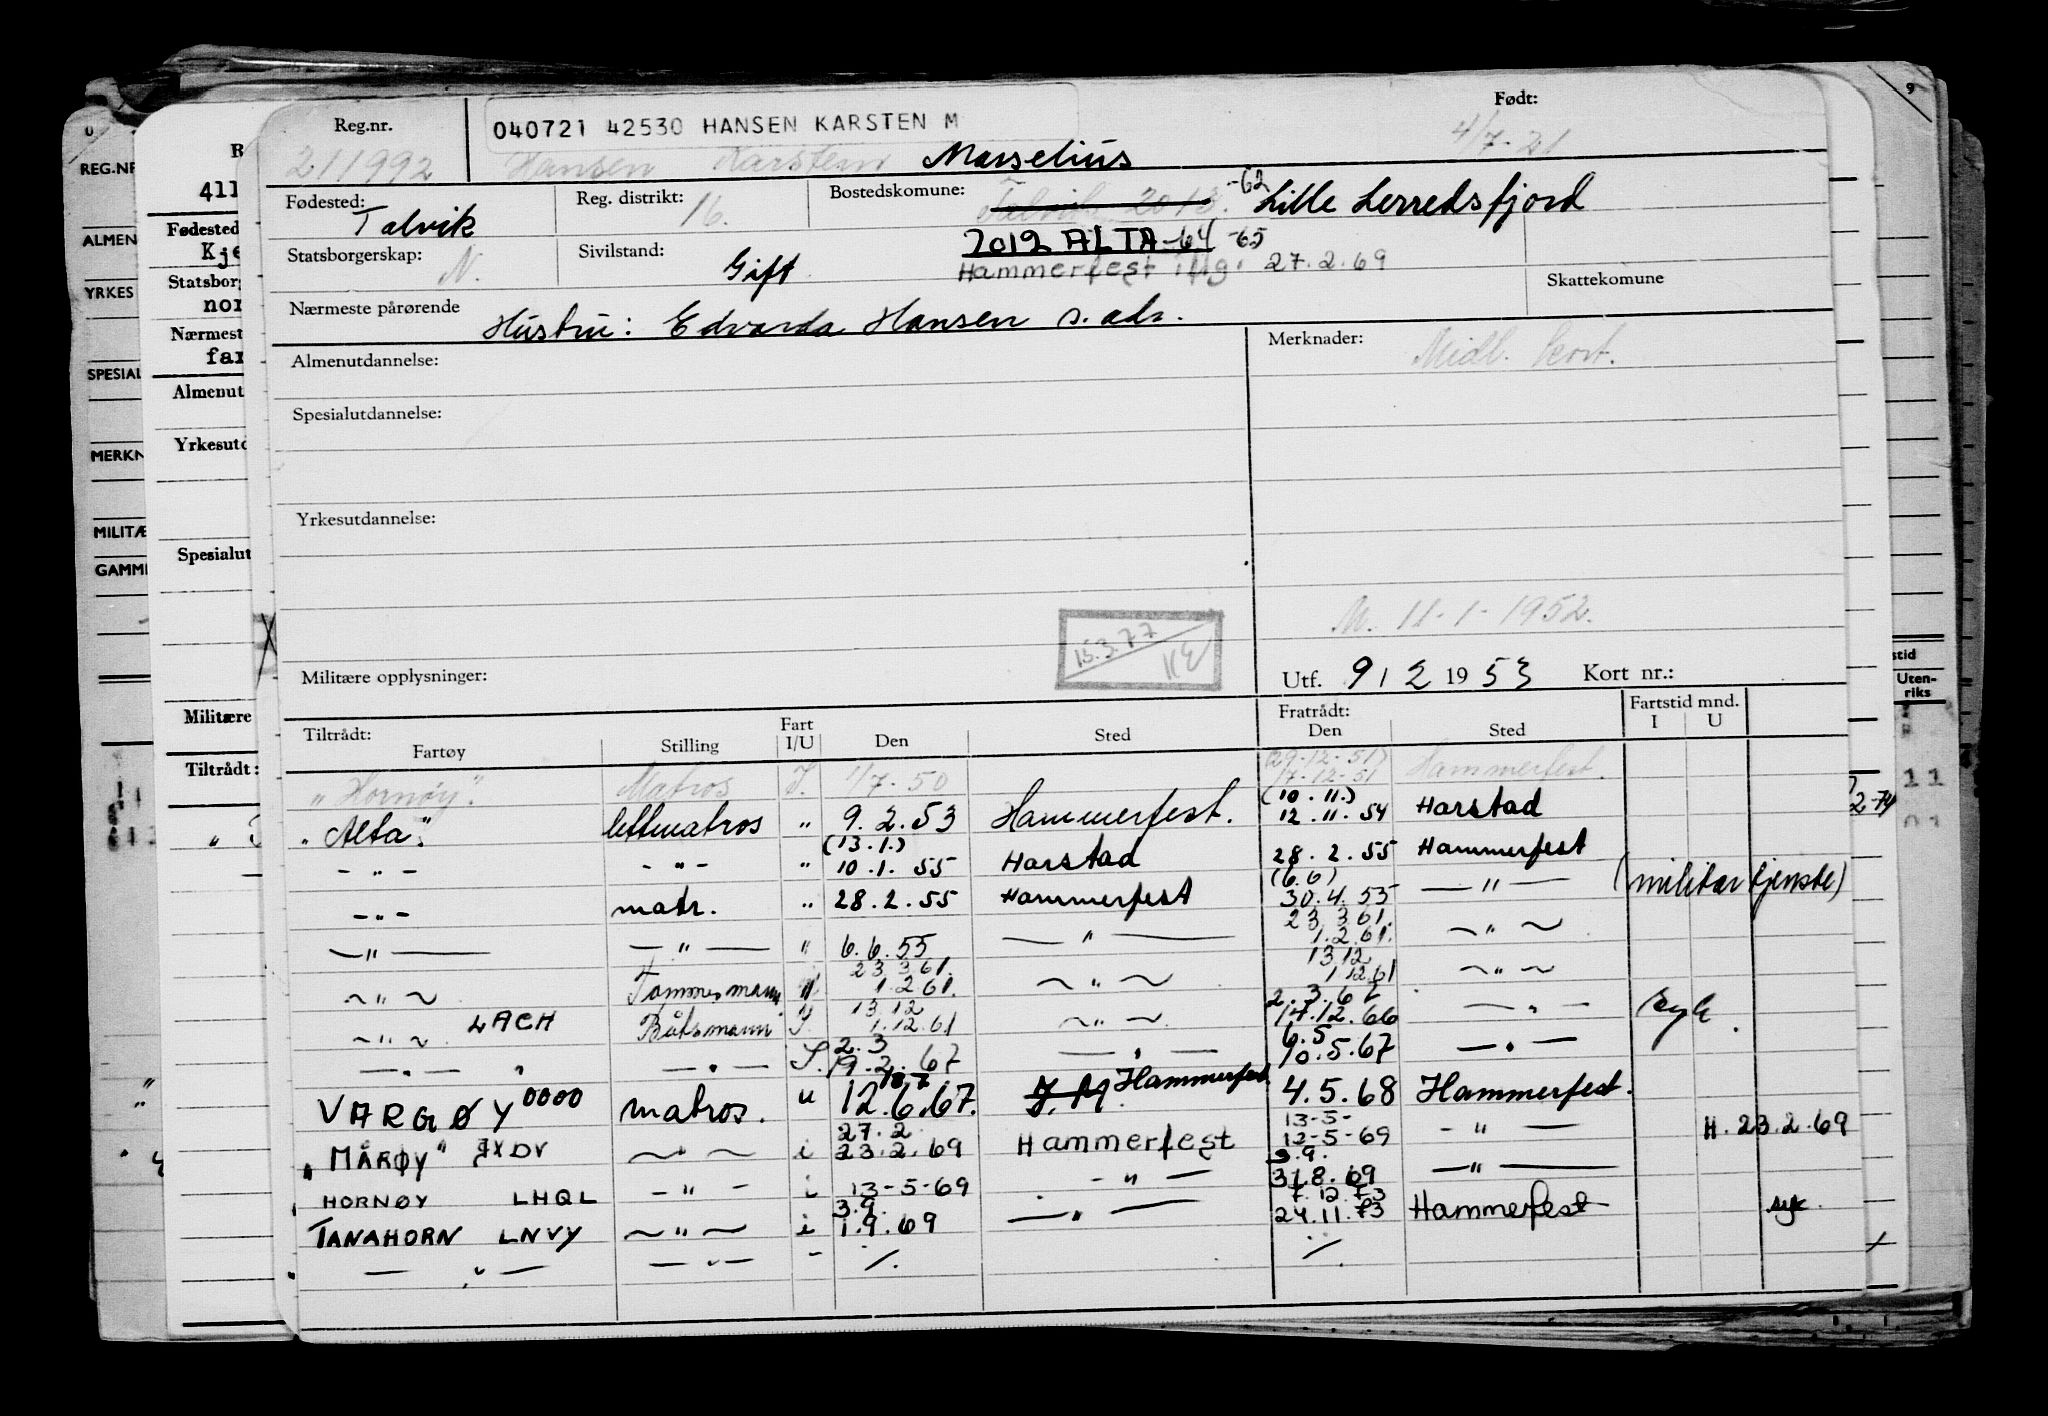 Reg.nr.
040721 42530 HANSEN KARSTEN M
Født:
211992 Hansen Karsten Marselius 4/7-21
Fødested: Talvik
Reg. distrikt: 16.
Bostedskomune: Talvik 2013. -62 Lille Lerredsfjord
2012 ALTA -64 -65
Hammerfest iflg. 27.2.69
Statsborgerskap: N.
Sivilstand: Gift
Skattekomune
Nærmeste pårørende Hustru: Edvarda Hansen s. adr.
Almenutdannelse:
Merknader: Midl. kort.
Spesialutdannelse:
Yrkesutdannelse:
M. 11-1-1952.
15.3.77
Militære opplysninger:
Utf. 9/2 1953 Kort nr.:
Tiltrådt: Fartøy Stilling Fart I/U Den Sted Fratrådt: Den Sted Fartstid mnd. I U
(29-12-51)
"Hornøy". Matros I. 1/7-50 17-12-51 Hammerfest.
(10.11.)
"Alta". lettmatros " 9.2.53 Hammerfest. 12.11.54 Harstad
(13.1.)
- " - - " - " 10.1.55 Harstad 28.2.55 Hammerfest
(6.6)
- " - matr. " 28.2.55 Hammerfest 30.4.55 - " - (militær tjenste)
23.3.61.
- " - - " - " 6.6.55 - " - 1.2.61. ~ " ~
23.3.61. 13.12
~ " ~ Tømmermann " 1.2.61. ~ " ~ 1.12.61 ~ " ~
13.12 2.3.67
~ " ~ LACH Båtsmann I. 1.12.61 ~ " ~ 14.12.66 - " - syk.
2.3 6.5
- " - " - " - 19.2.67 - " - 10.5.67 - " -
VARGØY OOOO matros. u 12.6.67. Hammerfest 4.5.68 Hammerfest.
27.2 13-5-
"MÅRØY" JXDV ~ " ~ i 23.2.69 Hammerfest 12-5-69 - " - H. 23.2.69
3.9.
HORNØY LHQL - " - i 13-5-69 - " - 31.8.69 - " -
3.9. 7.12.73
TANAHORN LNVY ~ " ~ i 1.9.69 - " - 24.11.73 Hammerfest syk.
- " - - " - - ./. ./.
REG.NR
ALMEN
YRKES
SPESIAL
MERKN
MILITÆ
GAMM
R
411
Fødested
Kje
Statsborg
nor
Nærmest
far
Almenut
Yrkesutd
Spesialut
Militære
Tiltrådt:
9
stid
Uten-
riks
11
2-74